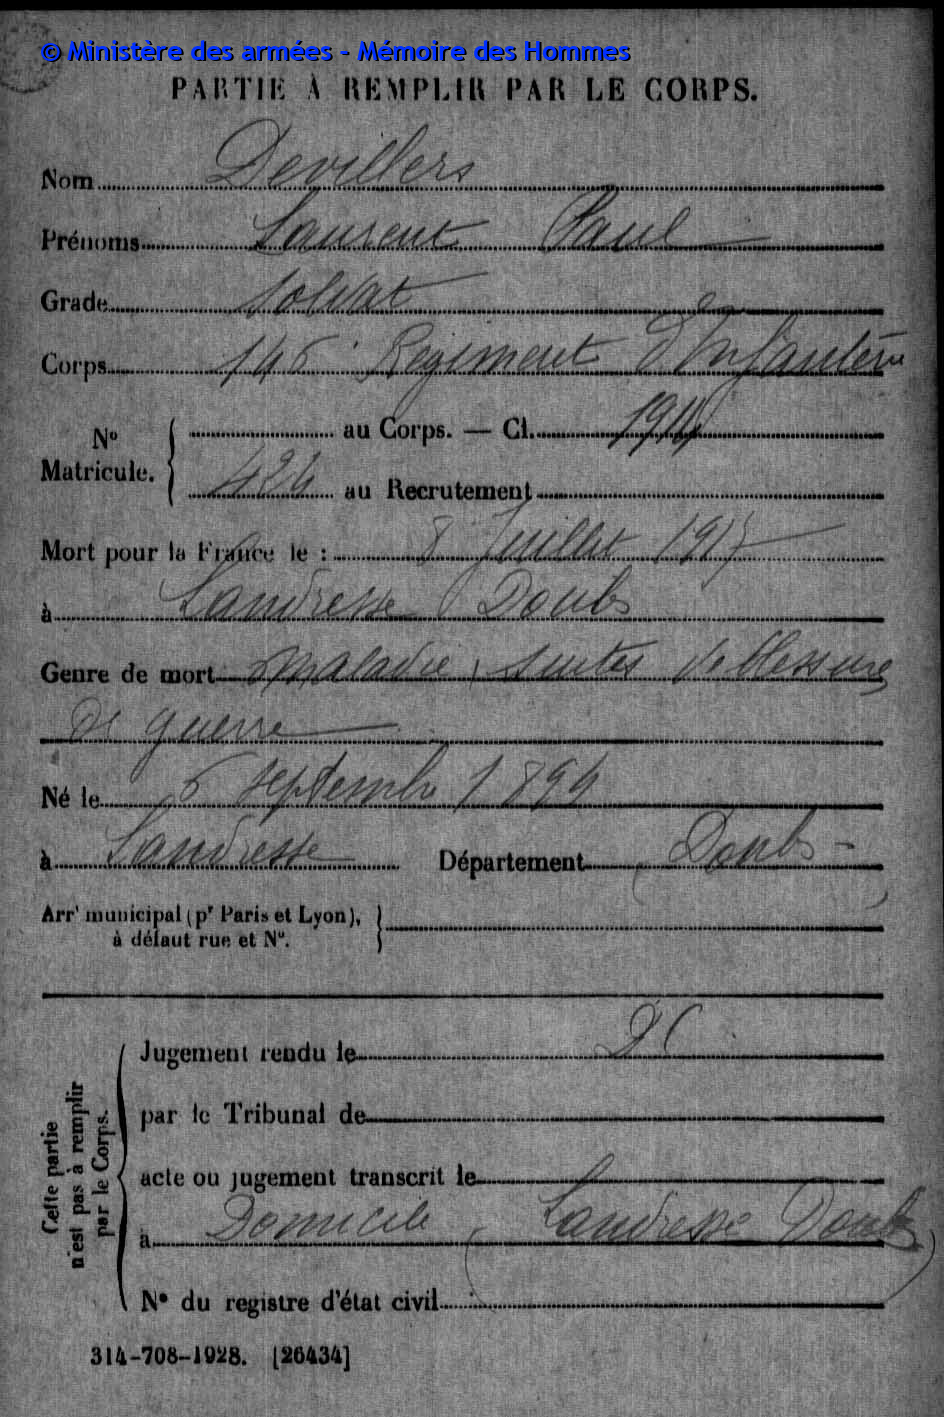 © Ministère des armées - Mémoire des Hommes
PARTIE À REMPLIR PAR LE CORPS.
Nom Devillers
Prénoms Laurent Paul
Grade soldat
Corps 146e Régiment d'Infanterie
No Matricule. { au Corps. — Cl. 1914
424 au Recrutement
Mort pour la France le : 8 Juillet 1917
à Landresse Doubs
Genre de mort maladie, suites de blessures
de guerre
Né le 6 septembre 1894
à Landresse Département Doubs
Arrt municipal (pr Paris et Lyon), }
à défaut rue et No.
Cette partie n'est pas à remplir par le Corps.
Jugement rendu le DC
par le Tribunal de
acte ou jugement transcrit le
à Domicile (Landresse Doubs)
No du registre d'état civil
314-708-1928. [26434]